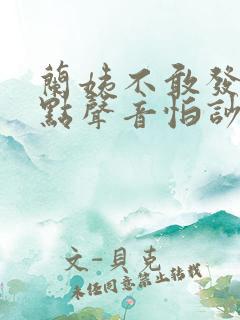 蘭姨不敢發
點聲音怕訬
文-貝克
未经同意禁止转载